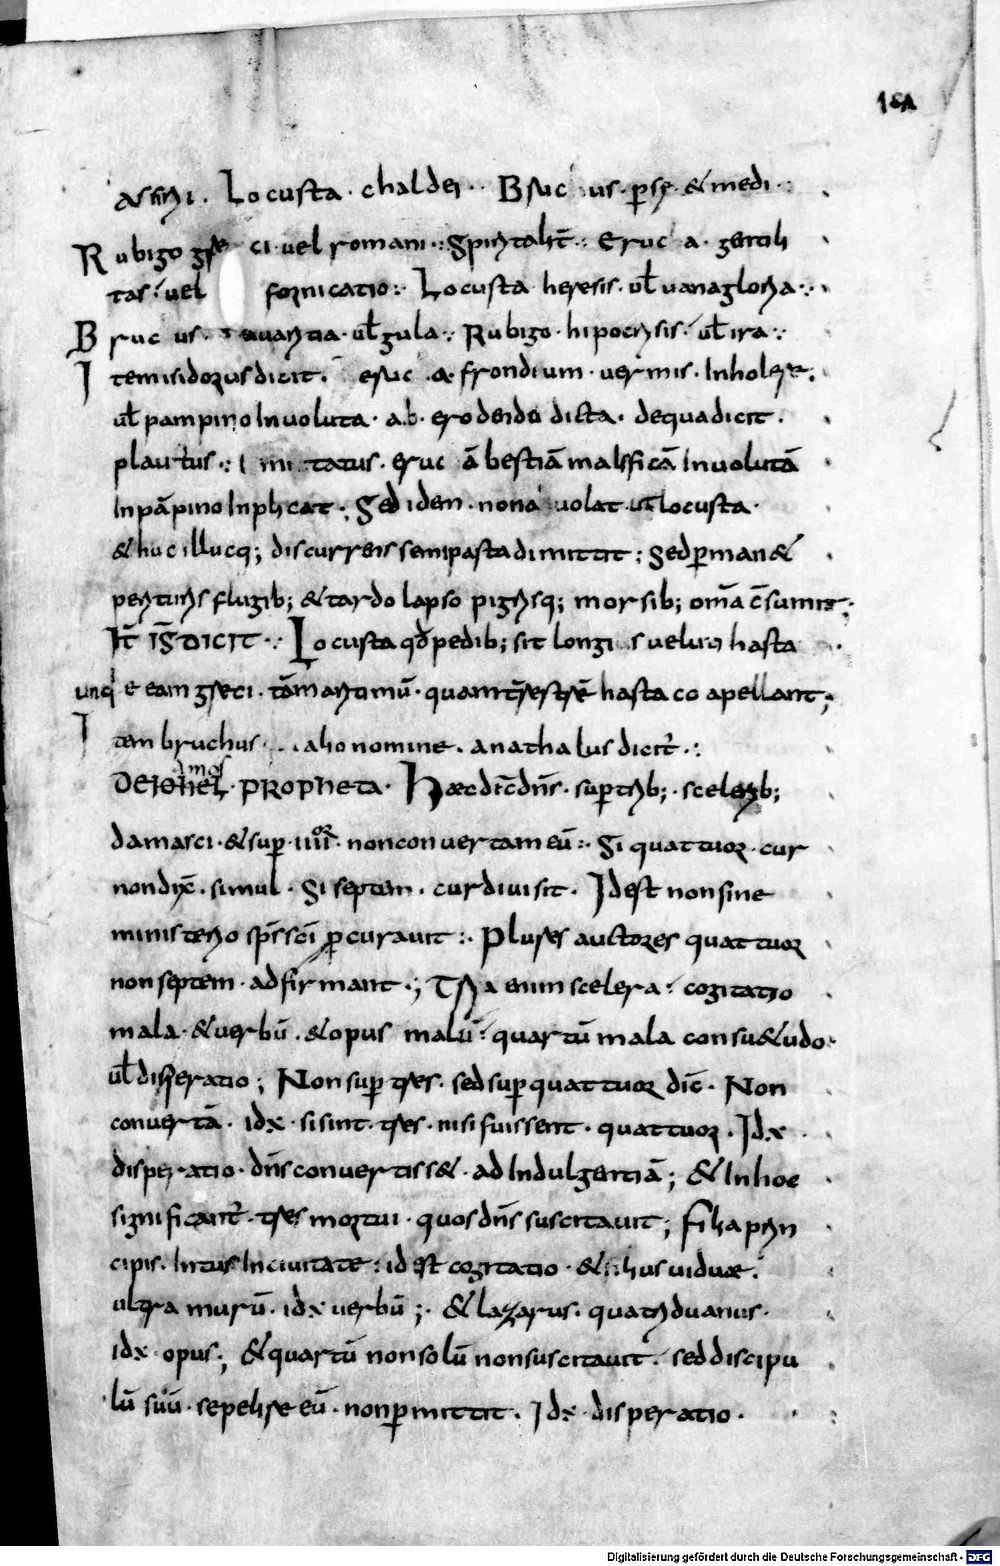 184
assirii. Locusta. chaldei.. Bruc us. p̲sę. & medi.:
Rubigo gre ci. vel romani.: Spiritalit̄.: Eruc a. gentili
tas. vel fornicatio:. Locusta heresis. ul̄ vanagloria.:
Bruc us. avaritia. ul̄ gula.: Rubigo. hipocrisis. ul̄ ira.:
Item isidorus dicit. eruc a. frondium. vermis. In holere.
ul̄ pampino Involuta. ab. erodendo dicta. de qua dicit.
plautus.: I mi tatus. eruc ā bestiā malificā Involutā
In pāpino Inplicat.; Sed idem. non a volat. ut locusta.
& huc illucq; discurrens semipasta dimittit; Sed p̲man&
perituris frugib; & tardo lapso pigrisq; morsib; om̄a c̄sumit;
It̄ IS̄ DICIT.: Locusta qd̄ pedib; sit longi s velud hasta
unde & eam greci. tā maritimū. quam t̄restrē hasta co apellant.;
Item bruchus. alio nomine. anathalus dicit̄.:
amos
DE IOHEL. PROPHETA. Haec dic̄ dn̄s. sup̲ trib;. sceleribs;
damasci. & sup̲. IIIIor. non convertam eū:. Si quattuor. cur
non dix̄. simul. Si septem. cur divisit. Id est non sine
ministerio sp̄s sc̄i p̲curavit:. Plures auctores quattuor
non septem. adfirmant.; Tria enim scelera. cogitatio
mala. & verbū. & opus malū. quartū mala consu&udo.
ul̄ disperatio; Non sup̲ tres. sed sup̲ quattuor dic̄. Non
convertā. idx. si sint. tres. nisi fuissent. quattuor. Idx.
disperatio. dn̄s convertiss&. ad Indulgentiā; & In hoc
significant̄. tres mortui. quos dn̄s suscitavit; filia prin
cipis. Intus In civitate. id est cogitatio. & filius viduae.
ultra murū. idx verbū;. & lazarus. quatriduanus.
idx. opus; & quartū non solū non suscitavit. sed discipu
lū suū. sepelire eū. non p̲mittit. Idx. disperatio.
Digitalisierung gefördert durch die Deutsche Forschungsgemeinschaft - DFG